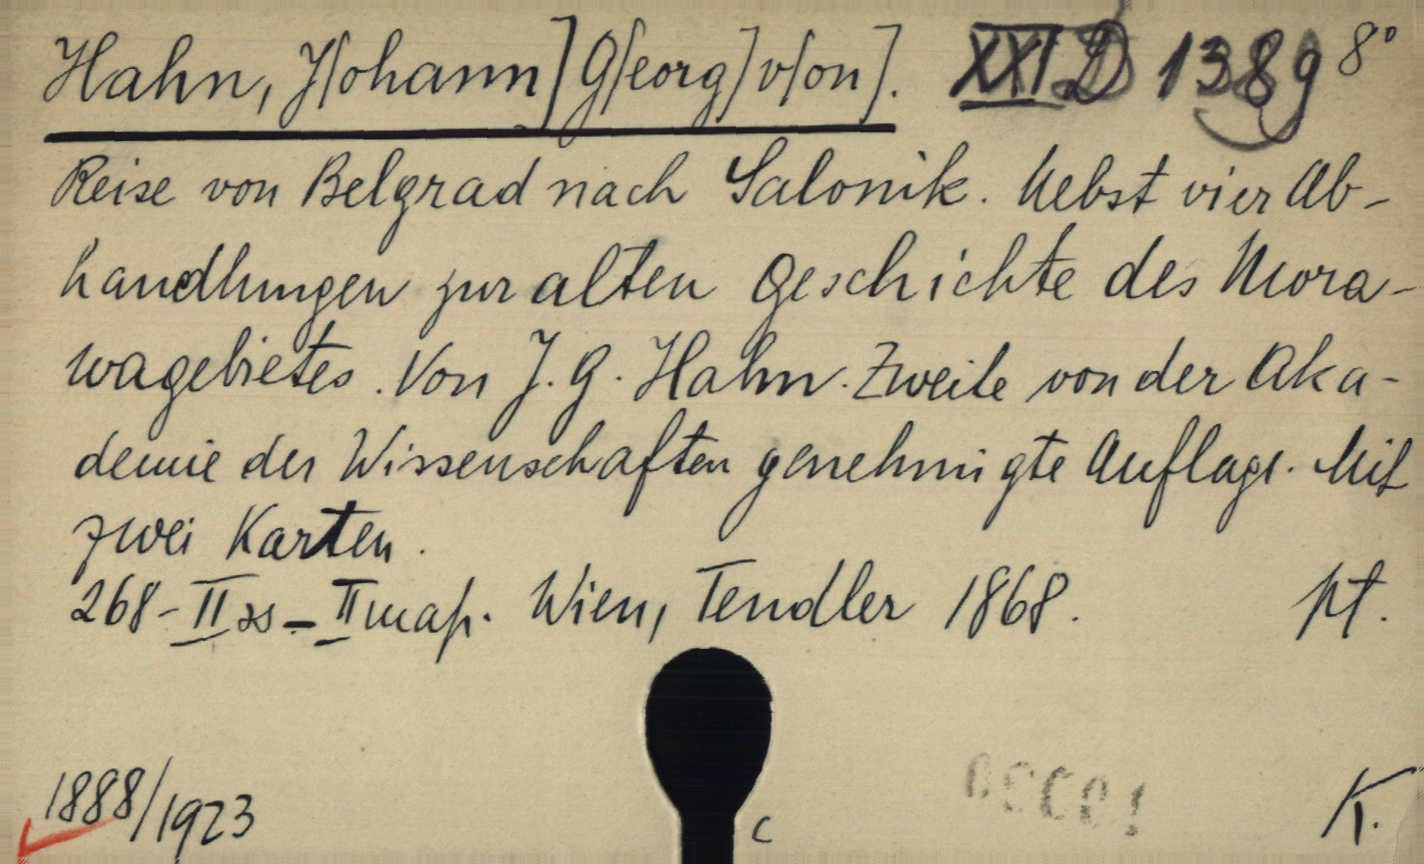 Hahn, J[ohann] G[eorg] v[on]. XXI D 1389 8°
Reise von Belgrad nach Salonik. Nebst vier Ab-
handlungen zur alten Geschichte des Mora-
wagebietes. Von J. G. Hahn. Zweite von der Aka-
demie der Wissenschaften genehmigte Auflage. Mit
zwei Karten.
268-II ss - II map. Wien, Tendler 1868. pt.
1888/1923 c K.